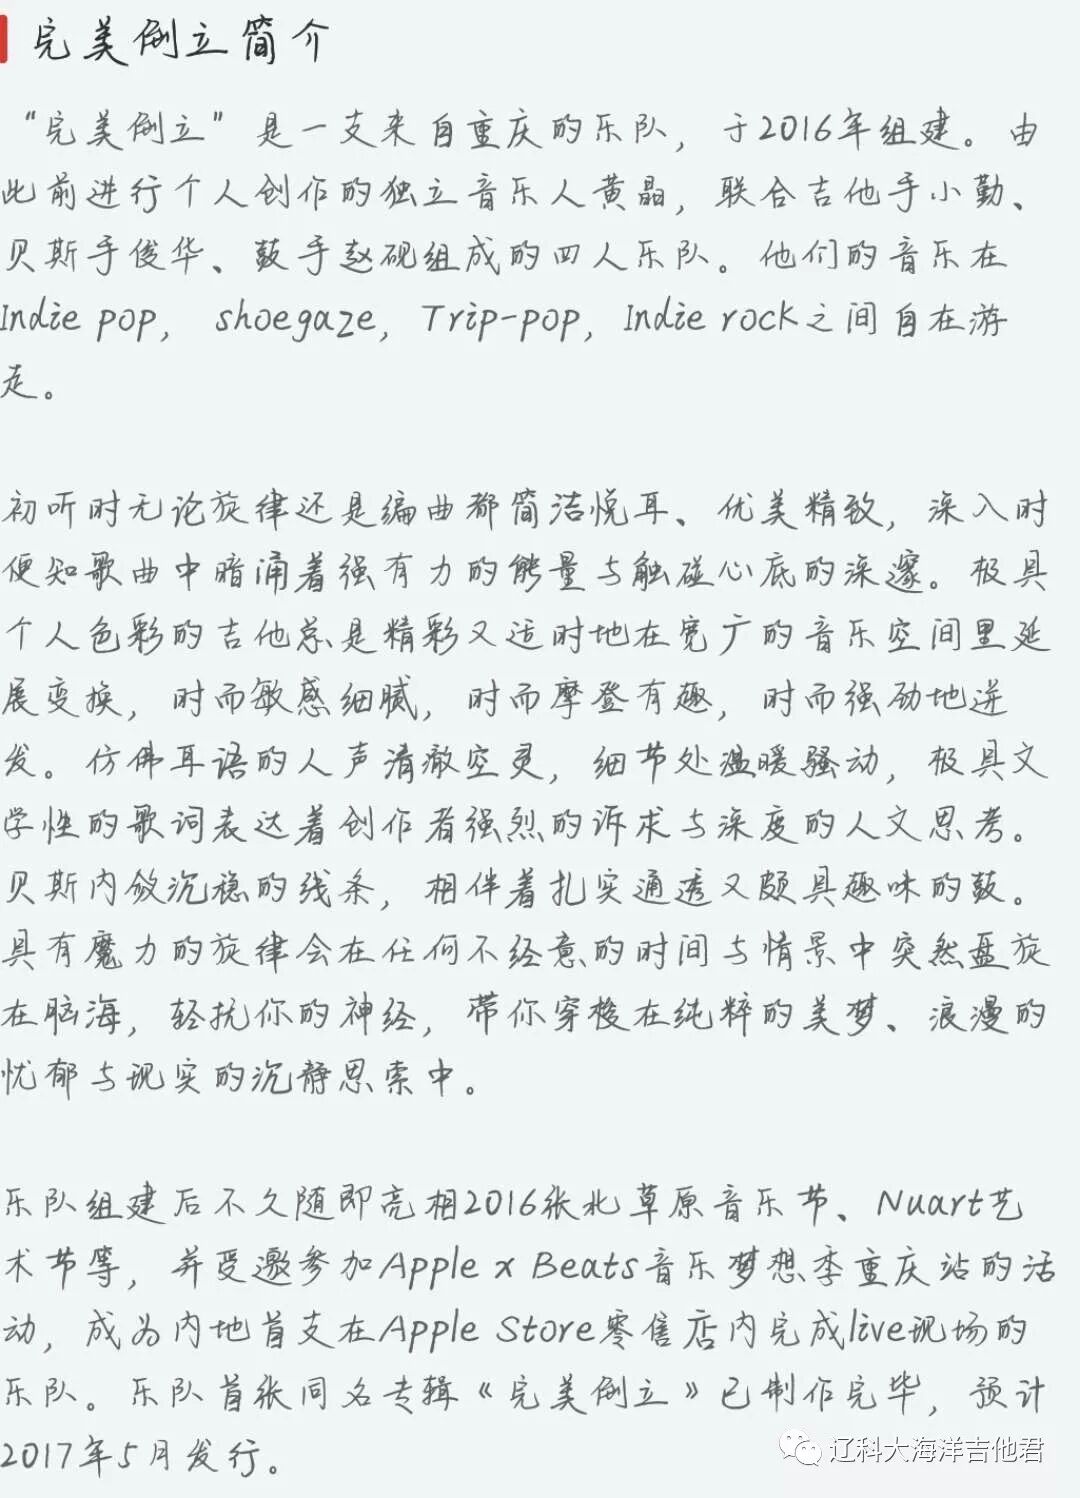 完美倒立简介
“完美倒立”是一支来自重庆的乐队，于2016年组建。由
此前进行个人创作的独立音乐人黄晶，联合吉他手小勤、
贝斯手俊华、鼓手赵砚组成的四人乐队。他们的音乐在
Indie pop， shoegaze，Trip-pop，Indie rock之间自在游
走。
初听时无论旋律还是编曲都简洁悦耳、优美精致，深入时
便知歌曲中暗涌着强有力的能量与触碰心底的深邃。极具
个人色彩的吉他总是精彩又适时地在宽广的音乐空间里延
展变换，时而敏感细腻，时而摩登有趣，时而强劲地迸
发。仿佛耳语的人声清澈空灵，细节处温暖骚动，极具文
学性的歌词表达着创作者强烈的诉求与深度的人文思考。
贝斯内敛沉稳的线条，相伴着扎实通透又颇具趣味的鼓。
具有魔力的旋律会在任何不经意的时间与情景中突然盘旋
在脑海，轻扰你的神经，带你穿梭在纯粹的美梦、浪漫的
忧郁与现实的沉静思索中。
乐队组建后不久随即亮相2016张北草原音乐节、Nuart艺
术节等，并受邀参加Apple x Beats音乐梦想季重庆站的活
动，成为内地首支在Apple Store零售店内完成live现场的
乐队。乐队首张同名专辑《完美倒立》已制作完毕，预计
2017年5月发行。
辽科大海洋吉他君